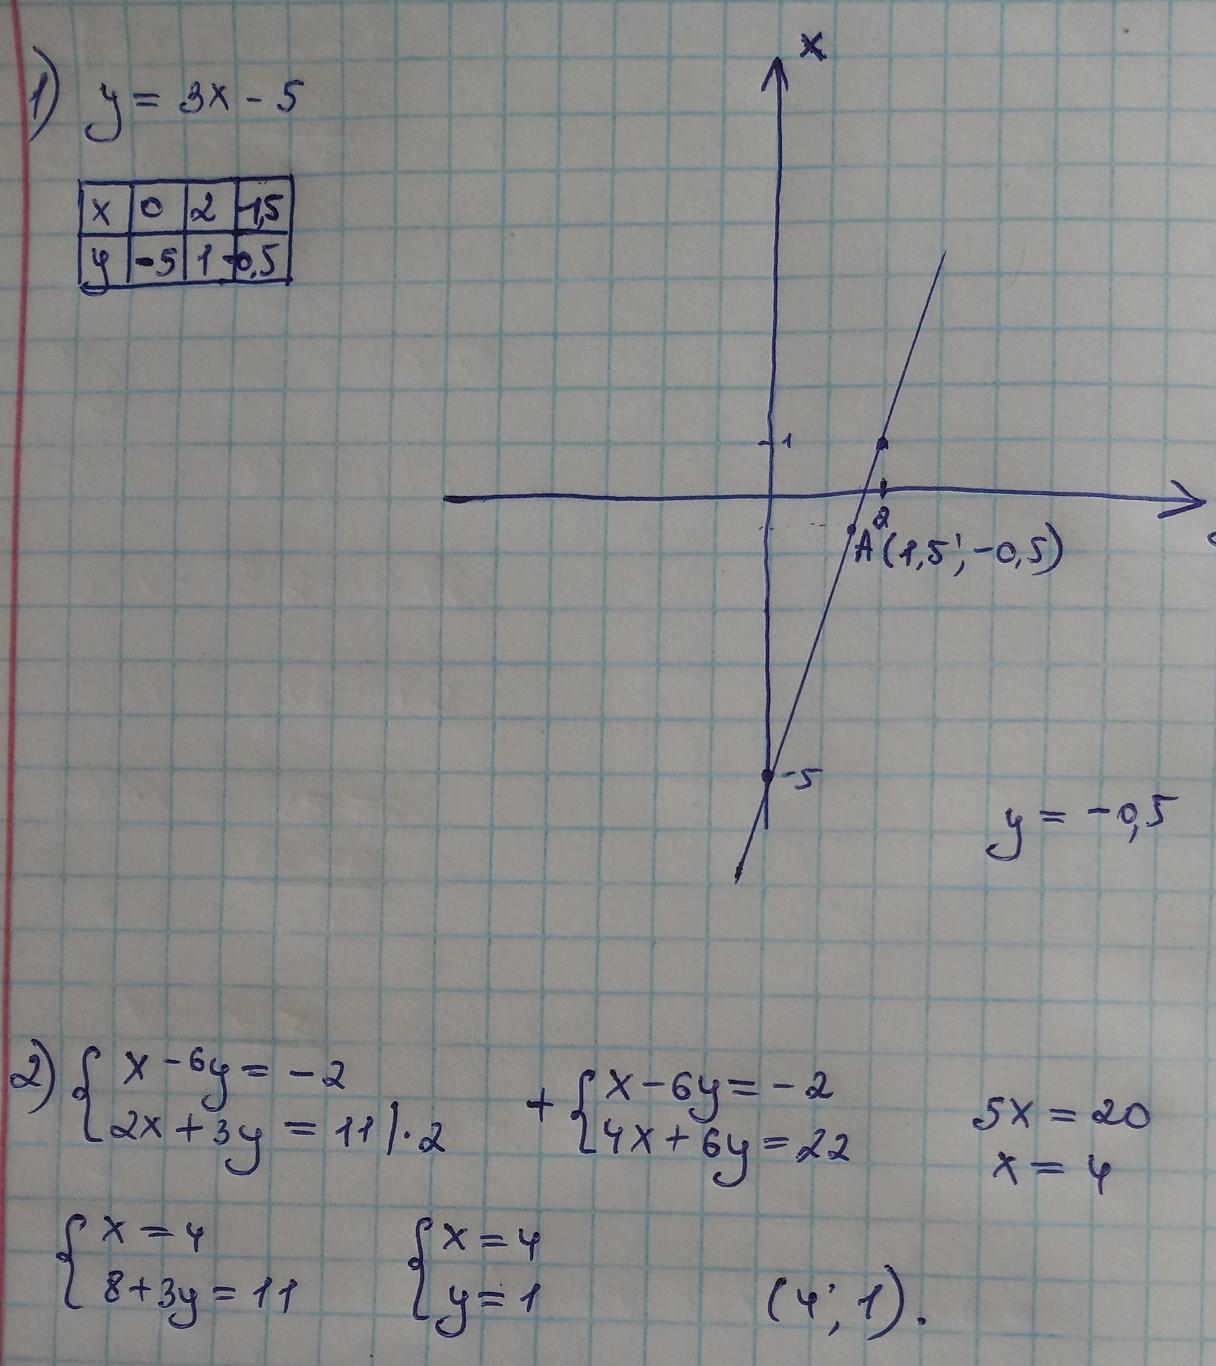 x
1) y = 3x - 5
x 0 2 1,5
y -5 1 -0,5
1
2
A (1,5; -0,5)
-5
y = -0,5
2) { x - 6y = -2
2x + 3y = 11 | · 2
+ { x - 6y = -2
4x + 6y = 22
5x = 20
x = 4
{ x = 4
8 + 3y = 11
{ x = 4
y = 1
(4; 1).